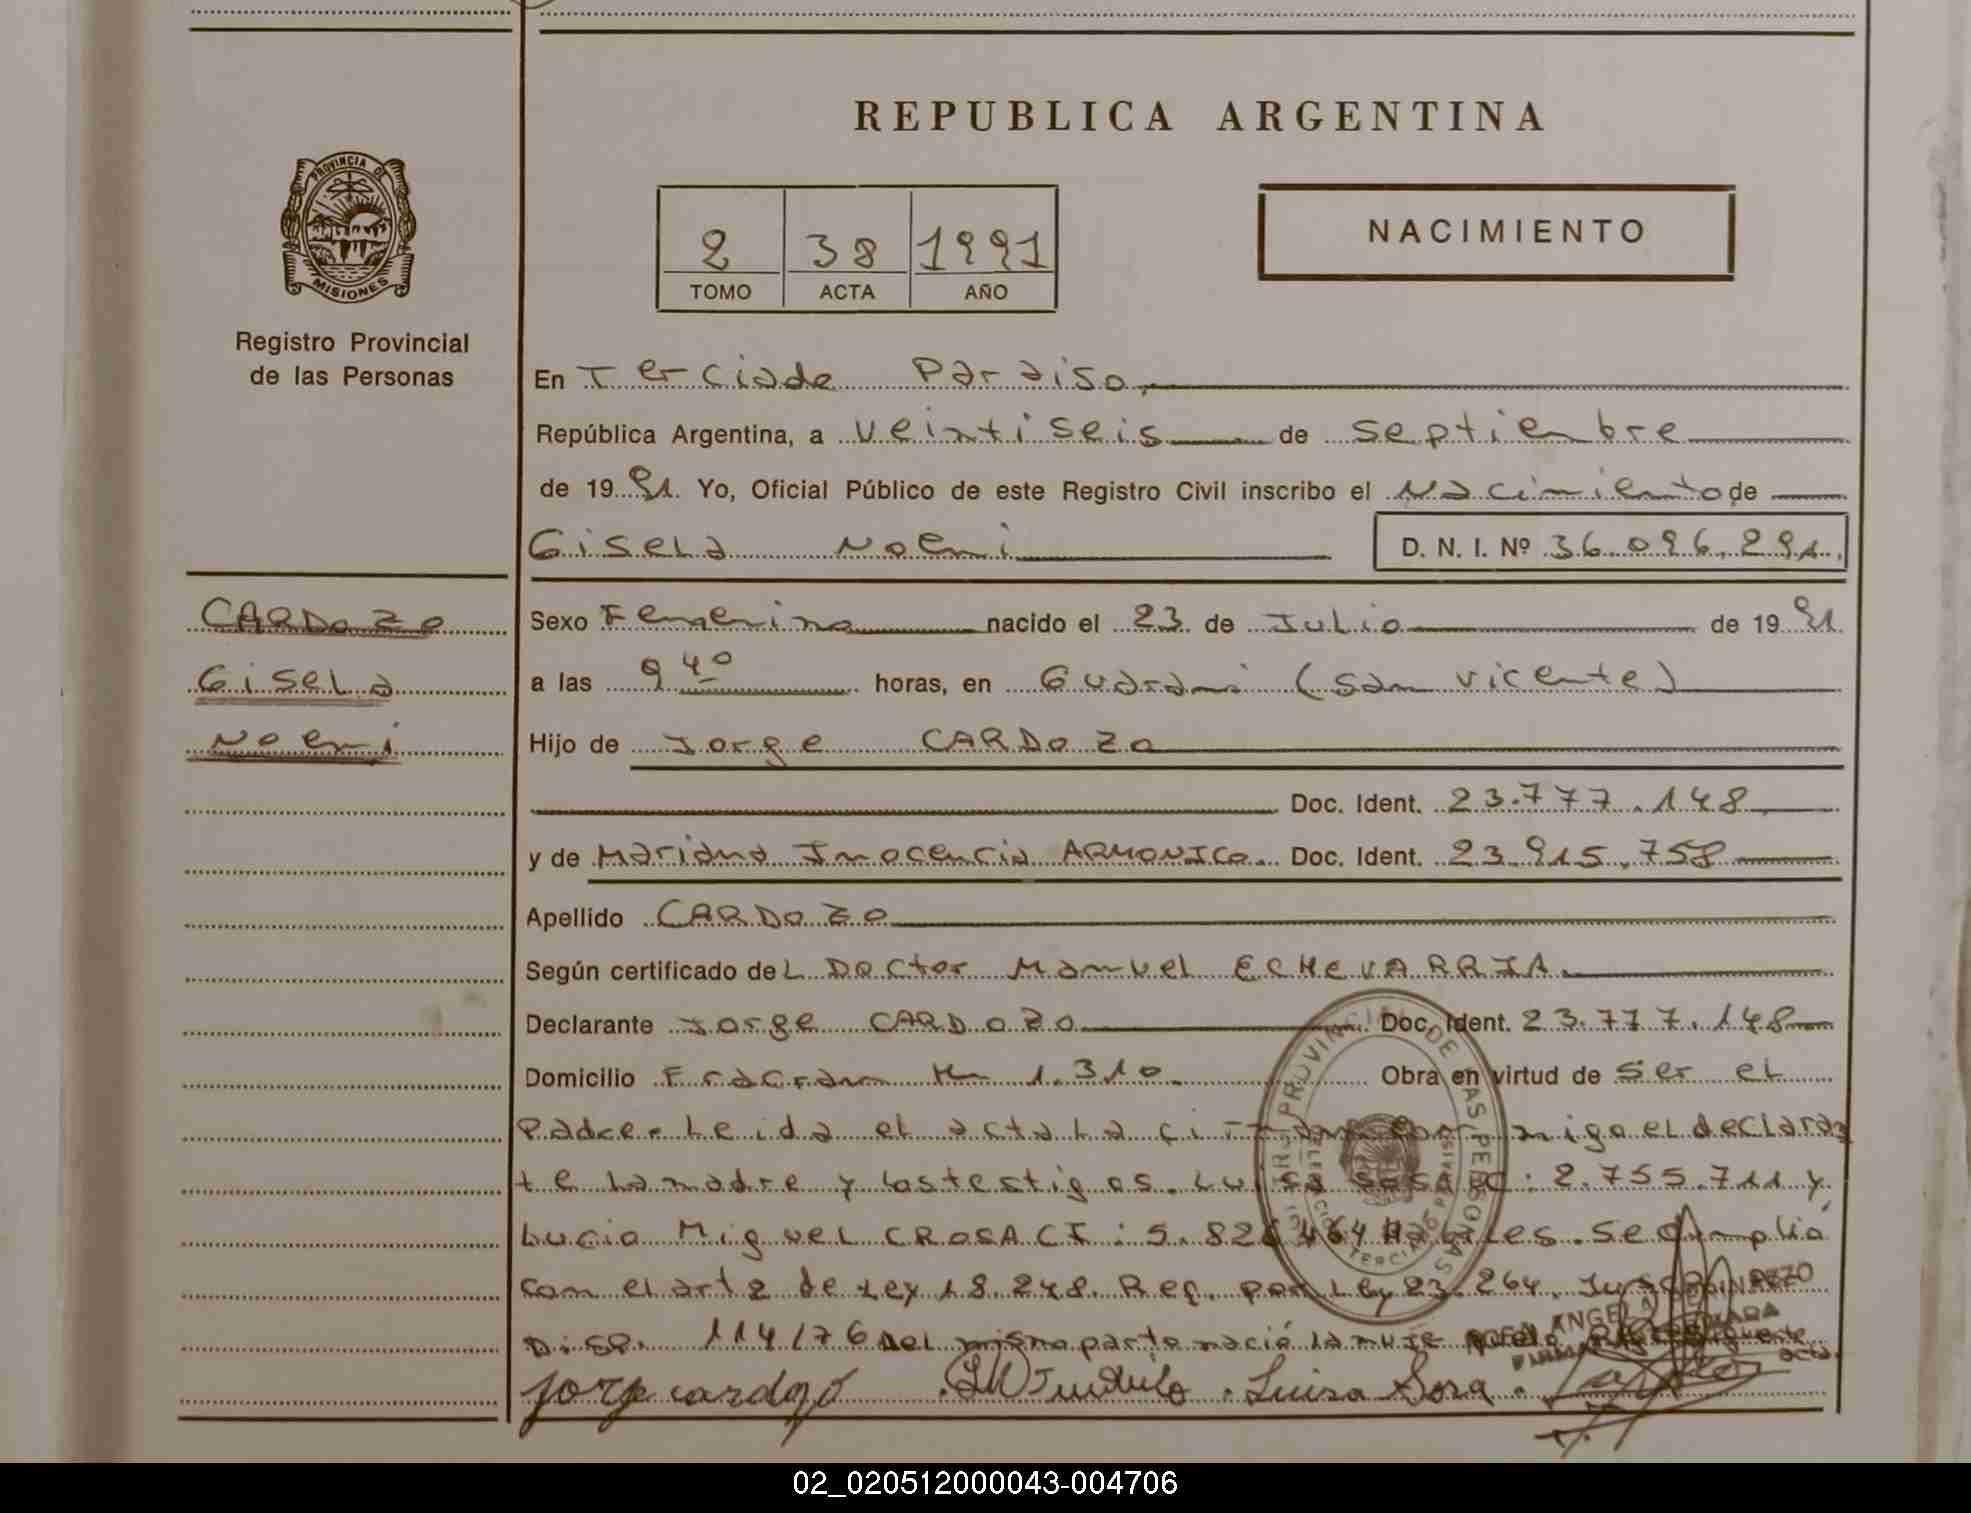 REPUBLICA ARGENTINA
PROVINCIA DE
MISIONES
Registro Provincial
de las Personas
2 38 1991
TOMO ACTA AÑO
NACIMIENTO
En Terciado Paraiso,
República Argentina, a veintiseis de septiembre
de 1991. Yo, Oficial Público de este Registro Civil inscribo el Nacimiento de
Gisela Noemi D. N. I. Nº 36.096.291.
CARDOZO
Gisela
Noemi
Sexo Femenino nacido el 23 de Julio de 1991.
a las 9 40 horas, en Guarani (san vicente)
Hijo de Jorge CARDOZO
Doc. Ident. 23.777.148
y de Mariana Inocencia ARMONICO. Doc. Ident. 23.915.758
Apellido CARDOZO
Según certificado del Doctor Manuel ECHEVARRIA.
Declarante Jorge CARDOZO Doc. Ident. 23.777.148
Domicilio Fracran Km 1.310. Obra en virtud de ser el
Padre. Leida el acta la conmigo el declaran
te la madre y los testigos. Luisa SOSA : 2.755.711 y
Lucio Miguel CROSA CI : 5.826464 Habiles. Se Cumplió
con el art 2 de Ley 18.248. Req. por Ley 23.264.
Disp. 114/76 Del mismo parto nació la
acta.
Jorge cardozo Luisa Sosa
02_020512000043-004706